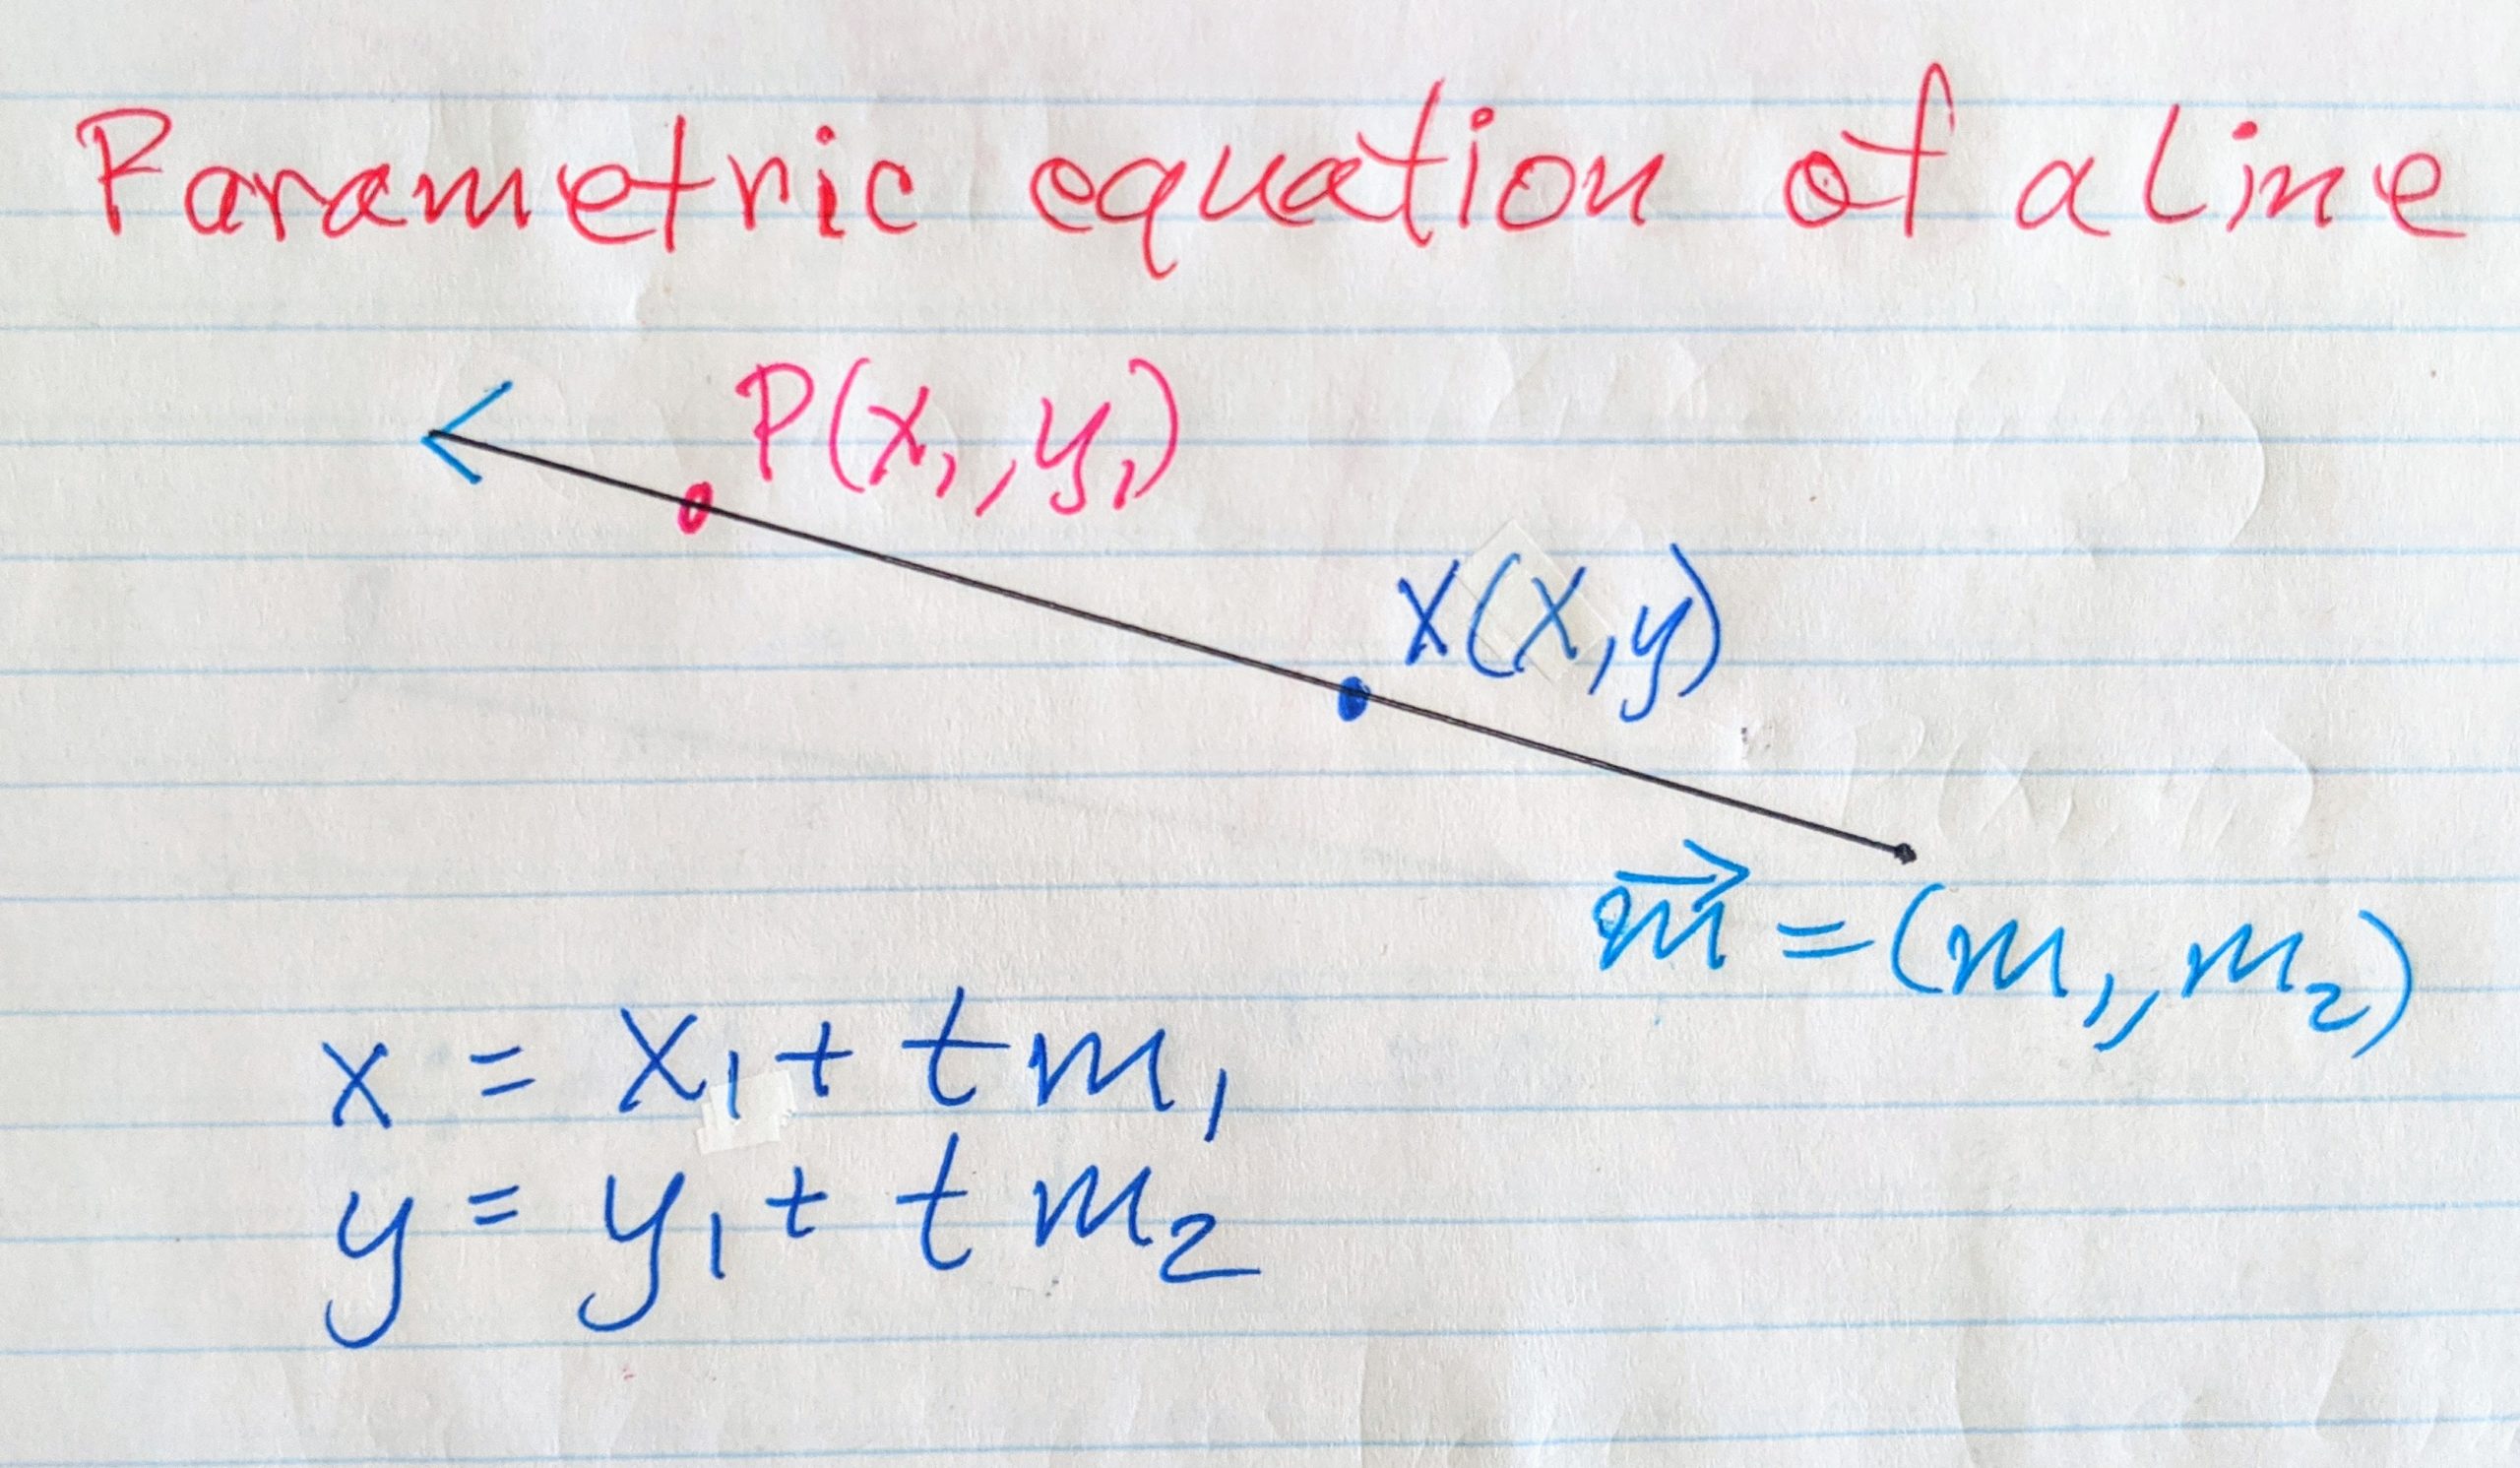 Parametric equation of a line
P(x₁, y₁)
X(x, y)
m⃗ = (m₁, m₂)
x = x₁ + t m₁
y = y₁ + t m₂